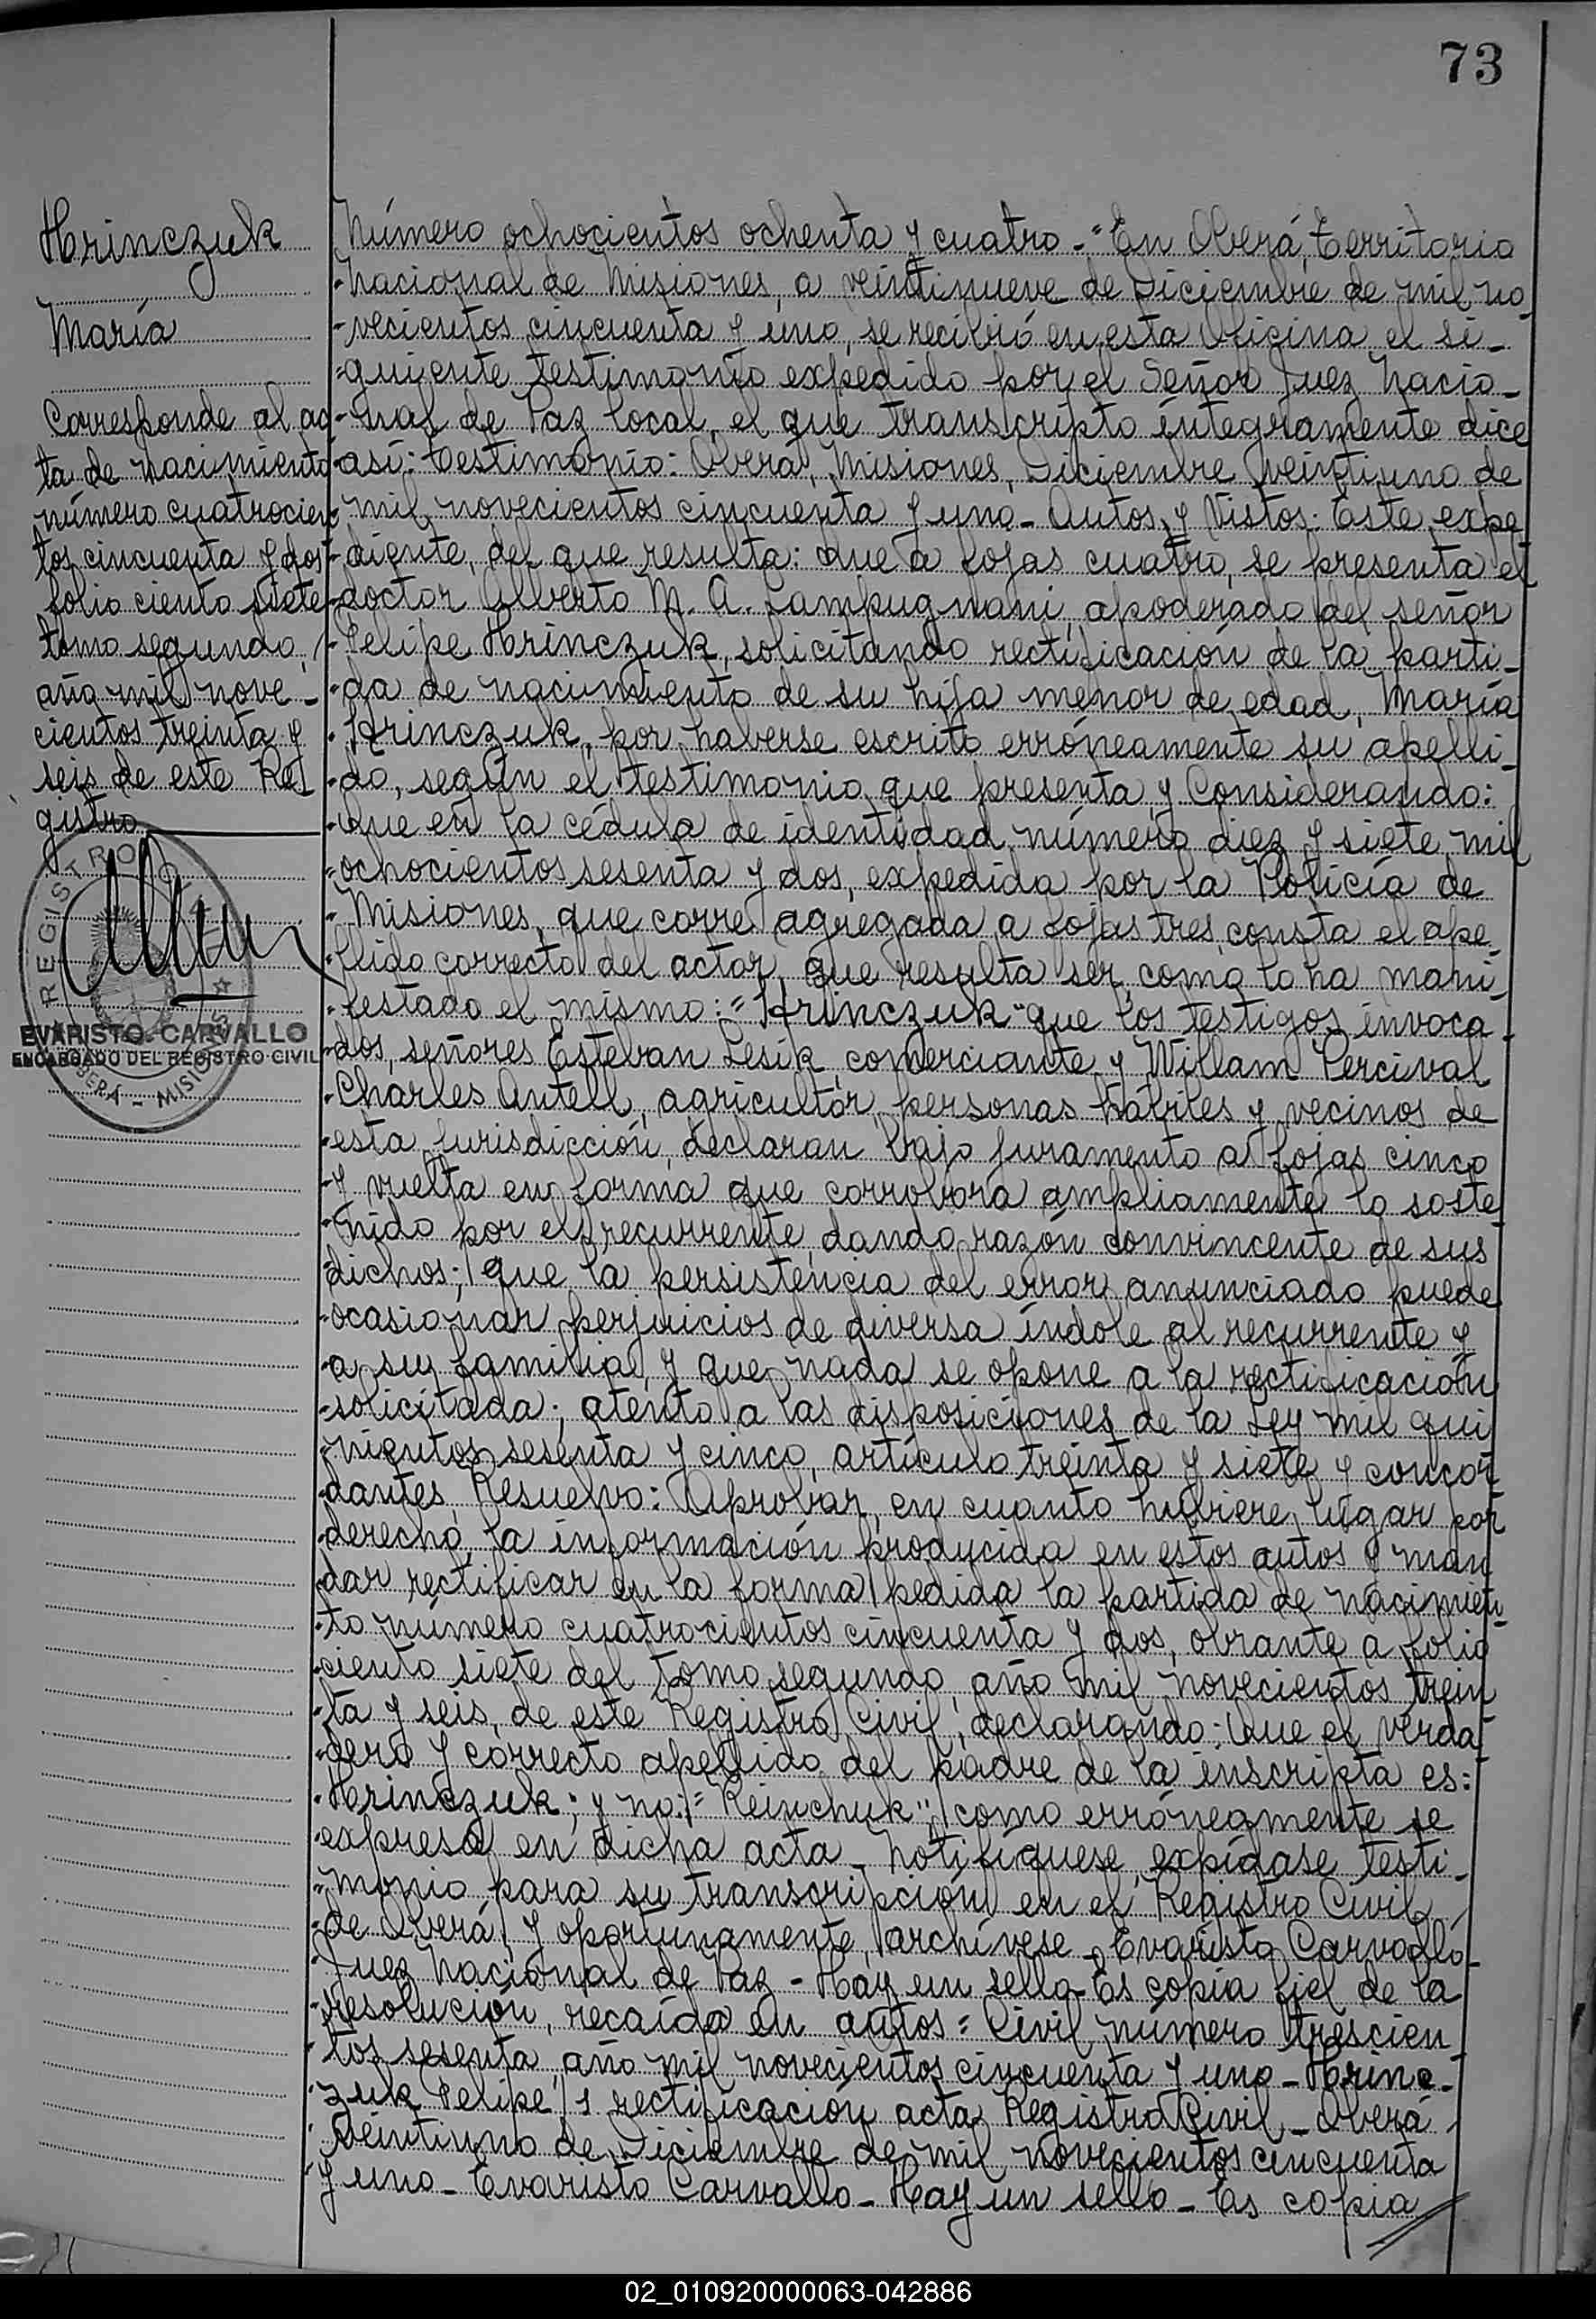 73
Hrinczuk
María
Corresponde al ac
ta de nacimiento
número cuatrocien
tos cincuenta y dos
folio ciento siete
tomo segundo,
año mil nove-
cientos treinta y
seis de este Re-
gistro
REGISTRO CIVIL
EVARISTO CARVALLO
ENCARGADO DEL REGISTRO CIVIL
OBERÁ - MISIONES
Número ochocientos ochenta y cuatro - "En Oberá, Territorio
nacional de Misiones, a veintinueve de Diciembre de mil no
vecientos cincuenta y uno, se recibió en esta Oficina el si-
guiente testimonio expedido por el Señor Juez Nacio-
nal de Paz local, el que transcripto íntegramente dice
así: Testimonio: Oberá, Misiones, Diciembre veintiuno de
mil novecientos cincuenta y uno - Autos y Vistos: Este expe
diente, del que resulta: Que a fojas cuatro, se presenta el
doctor Alberto M. A. Lampugnani, apoderado del señor
Felipe Hrinczuk, solicitando rectificación de la parti-
da de nacimiento de su hija menor de edad, María
Hrinczuk, por haberse escrito erróneamente su apelli-
do, según el testimonio que presenta y Considerando:
Que en la cédula de identidad número diez y siete mil
ochocientos sesenta y dos, expedida por la Policía de
Misiones, que corre agregada a fojas tres, consta el ape-
llido correcto del actor, que resulta ser, como lo ha mani-
festado el mismo: = Hrinczuk" que los testigos invoca-
dos, señores Esteban Lesik, comerciante y Willam Percival
Charles Antell, agricultor, personas hábiles y vecinos de
esta jurisdicción, declaran bajo juramento a fojas cinco
y vuelta en forma que corrobora ampliamente lo soste
nido por el recurrente, dando razón convincente de sus
dichos; que la persistencia del error anunciado puede
ocasionar perjuicios de diversa índole al recurrente y
a su familia, y que nada se opone a la rectificación
solicitada; atento a las disposiciones de la Ley mil qui
nientos sesenta y cinco, artículo treinta y siete y concor
dantes, Resuelvo: Aprobar, en cuanto hubiere lugar por
derecho, la información producida en estos autos y man
dar rectificar en la forma pedida la partida de nacimien
to número cuatrocientos cincuenta y dos, obrante a folio
ciento siete del tomo segundo, año mil novecientos trein
ta y seis, de este Registro Civil, declarando: Que el verda
dero y correcto apellido del padre de la inscripta es:
Hrinczuk; y no: = Reinchuk", como erróneamente se
expresa en dicha acta - Notifíquese, expídase testi-
monio para su transcripción en el Registro Civil
de Oberá, y oportunamente, archívese - Evaristo Carvallo -
Juez Nacional de Paz - Hay un sello - Es copia fiel de la
resolución, recaída en autos = Civil número trescien
tos sesenta, año mil novecientos cincuenta y uno - Hrinc-
zuk Felipe s/ rectificación acta Registro Civil - Oberá
veintiuno de Diciembre de mil novecientos cincuenta
y uno - Evaristo Carvallo - Hay un sello - Es copia
02_010920000063-042886